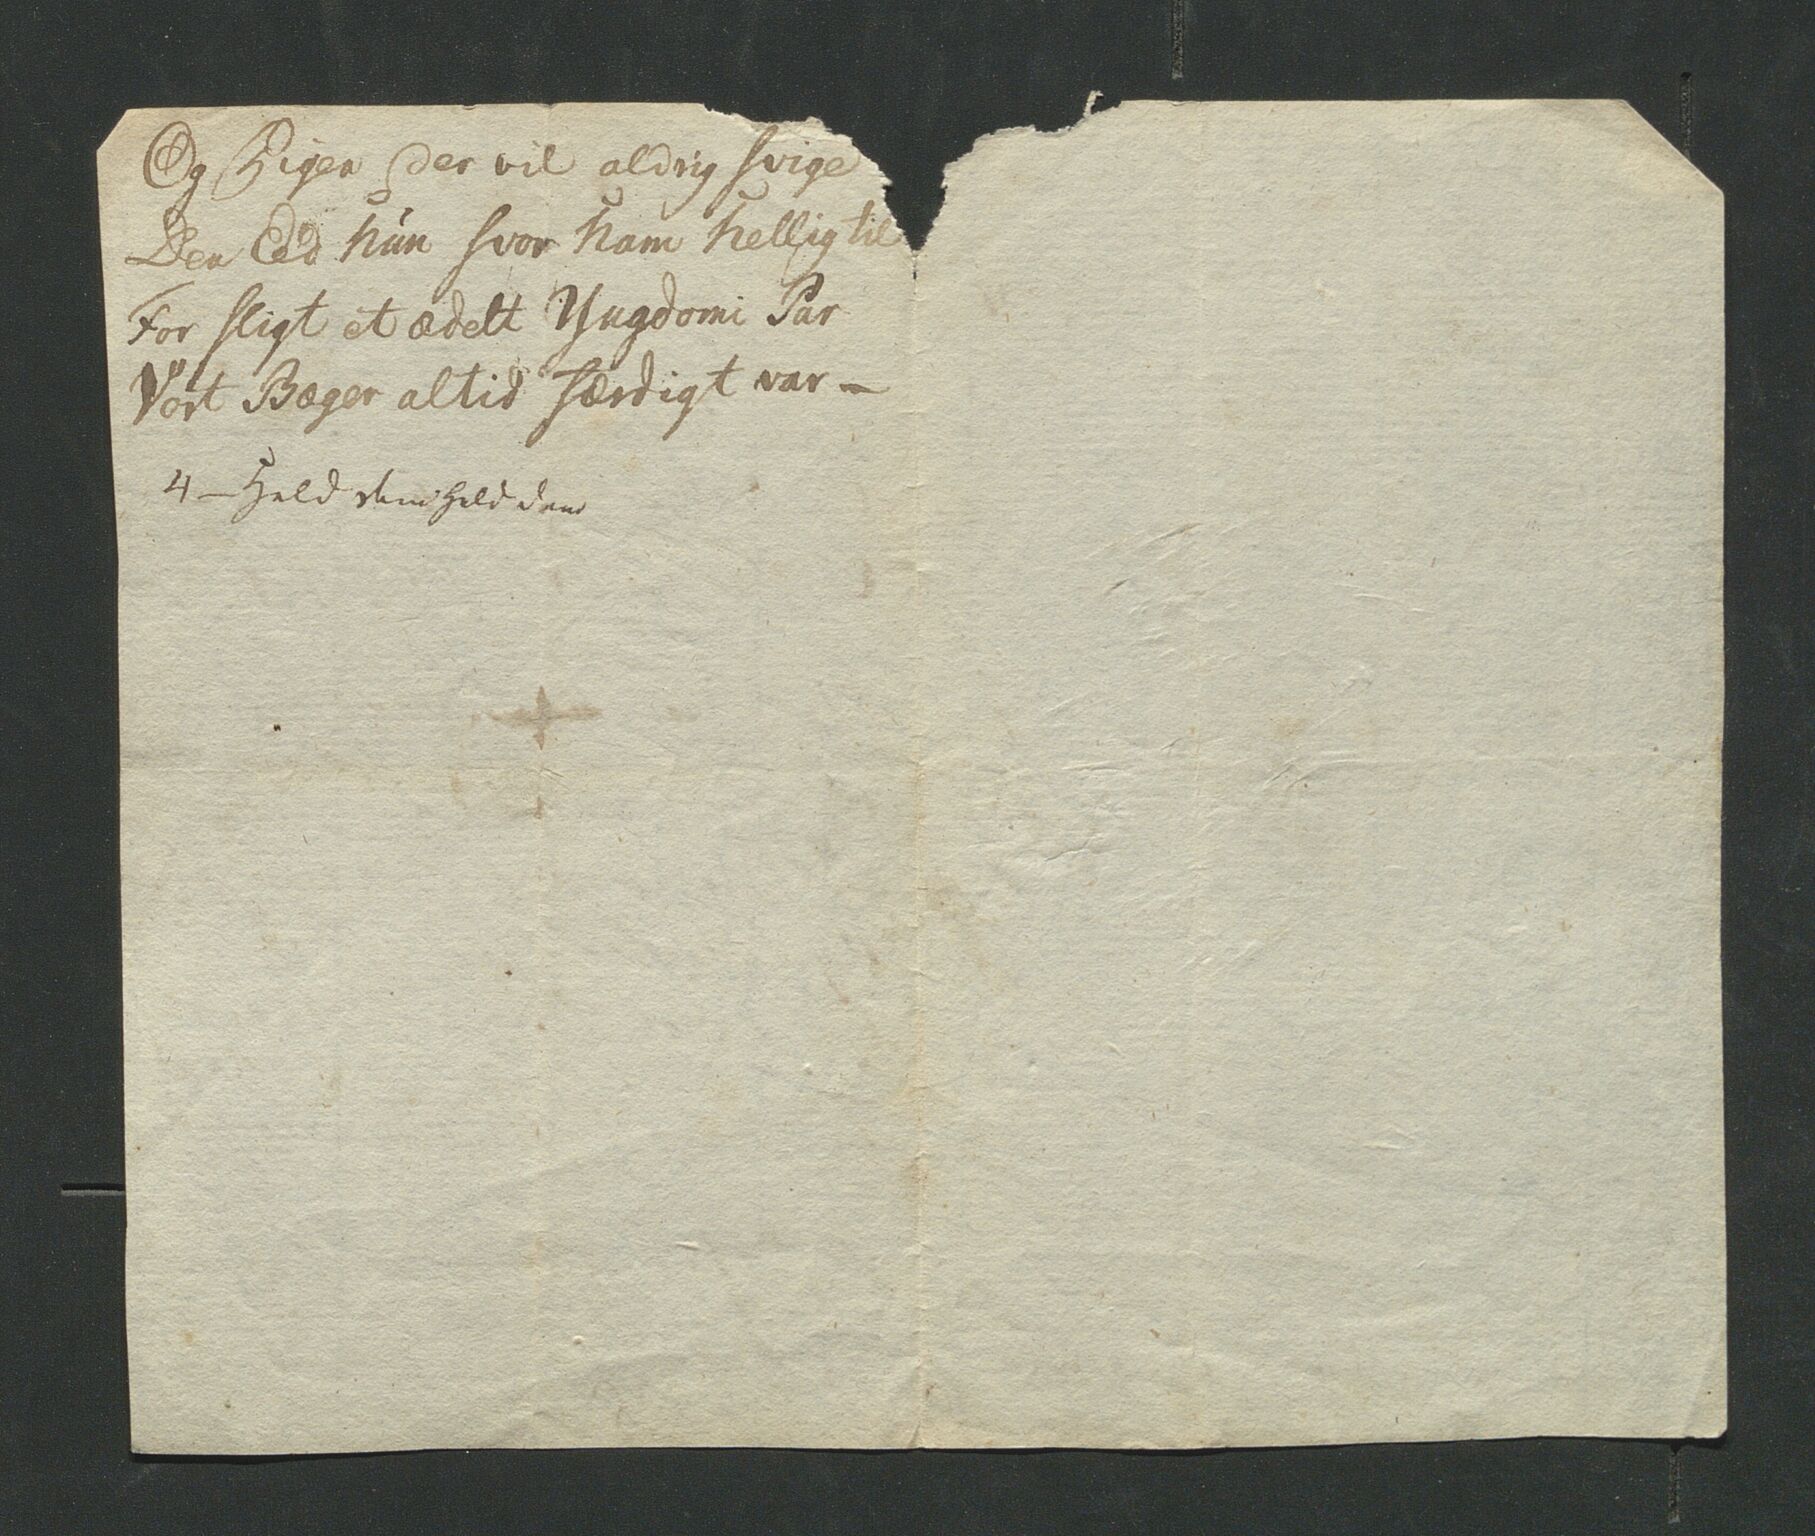 Og Pigen der vil aldrig svige
Den Eed hún svor ham hellig til
For sligt et ædelt Yngdoms Par
Vort Bæger altid færdigt var –
4 – Held dem held dem